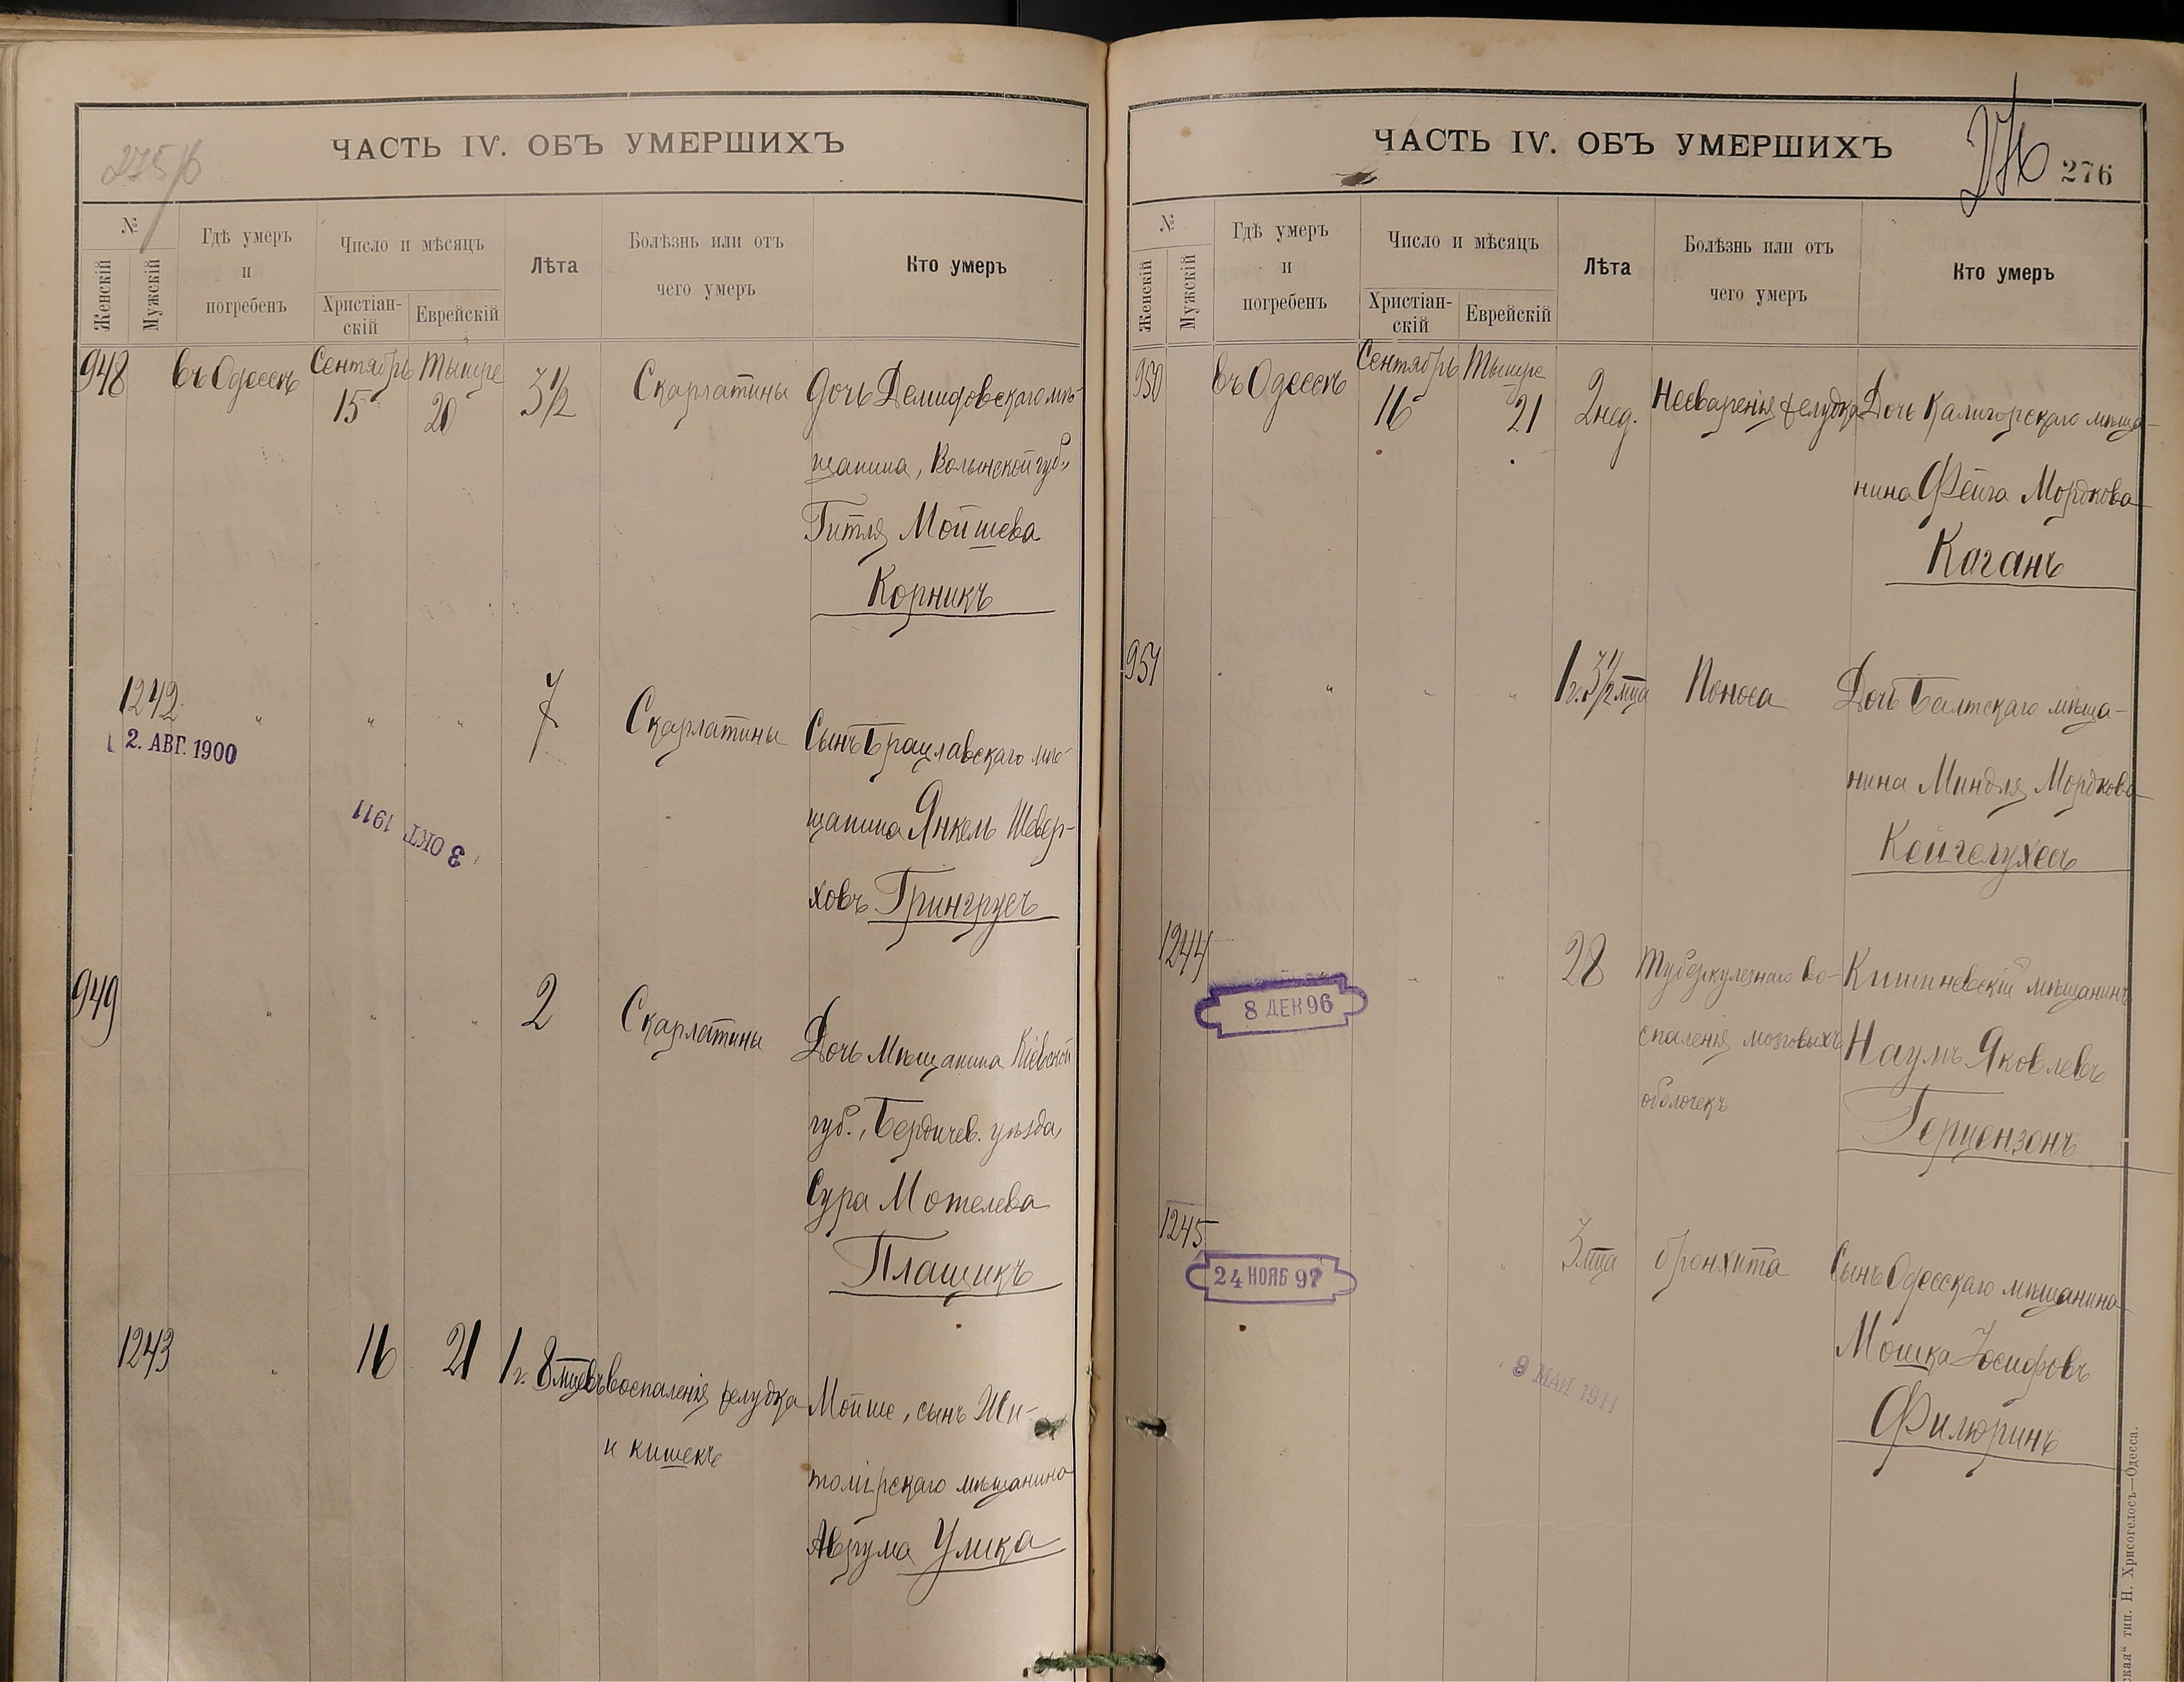 275/б
ЧАСТЬ IV. ОБЪ УМЕРШИХЪ
№
Женскій
Мужскій
Гдѣ умеръ
и
погребенъ
Число и мѣсяцъ
Христіан-
скій
Еврейскій
Лѣта
Болѣзнь или отъ
чего умеръ
Кто умеръ
948 въ Одессѣ Сентябрь 15 Тышре 20 3 1/2 Скарлатины Дочь Демидовскаго мѣ-
щанина, Волынской губ.,
Гитля Мойшева
Корникъ
1242 " " " 7 Скарлатины Сынъ Брацлавскаго мѣ-
2. АВГ. 1900
щанина Янкель Швер-
3 ОКТ. 1911
ховъ Грингрусъ
949 " " " 2 Скарлатины Дочь Мѣщанина Кіевской
губ., Бердичев. уѣзда,
Сура Мотелева
Плащикъ
1243 " 16 21 1 г. 8 мцевъ воспаленія желудка Мойше, сынъ Жи-
и кишекъ
томірскаго мѣщанина
Аврума Улика
ЧАСТЬ IV. ОБЪ УМЕРШИХЪ
276
276
№
Женскій
Мужскій
Гдѣ умеръ
и
погребенъ
Число и мѣсяцъ
Христіан-
скій
Еврейскій
Лѣта
Болѣзнь или отъ
чего умеръ
Кто умеръ
950 въ Одессѣ Сентябрь 16 Тышре 21 2 нед. Несваренія желудка Дочь Калигорскаго мѣща-
нина Фейга Мордкова
Каганъ
951 " " " 1 г. 3 1/2 мца Поноса Дочь Балтскаго мѣща-
нина Миндля Мордкова
Кейгелухесъ
1244 " " 28 Туберкулезнаго во- Кишиневскій мѣщанинъ
8 ДЕК 96
спаленія мозговыхъ Наумъ Яковлевъ
оболочекъ
Герцензонъ
1245 " " 3 мца бронхита Сынъ Одесскаго мѣщанина
24 НОЯБ 97
Мошка Іосифовъ
9 МАЙ 1911
Филюринъ
ская" тип. Н. Хрисогелосъ—Одесса.